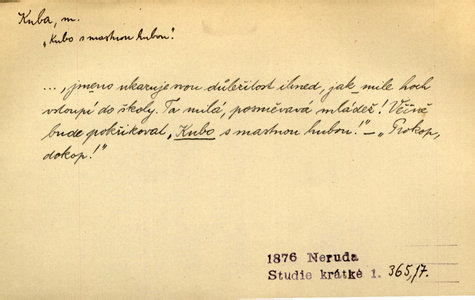 Kuba, m.
„Kubo s mastnou hubou“!
..., jmeno ukazuje svou důležitost ihned, jak mile hoch
vstoupí do školy. Ta milá, posměvavá mládež! Věčně
bude pokřikovat „Kubo s mastnou hubou!“ – „Prokop,
dokop!“
1876 Neruda
Studie krátké 1. 365,17.